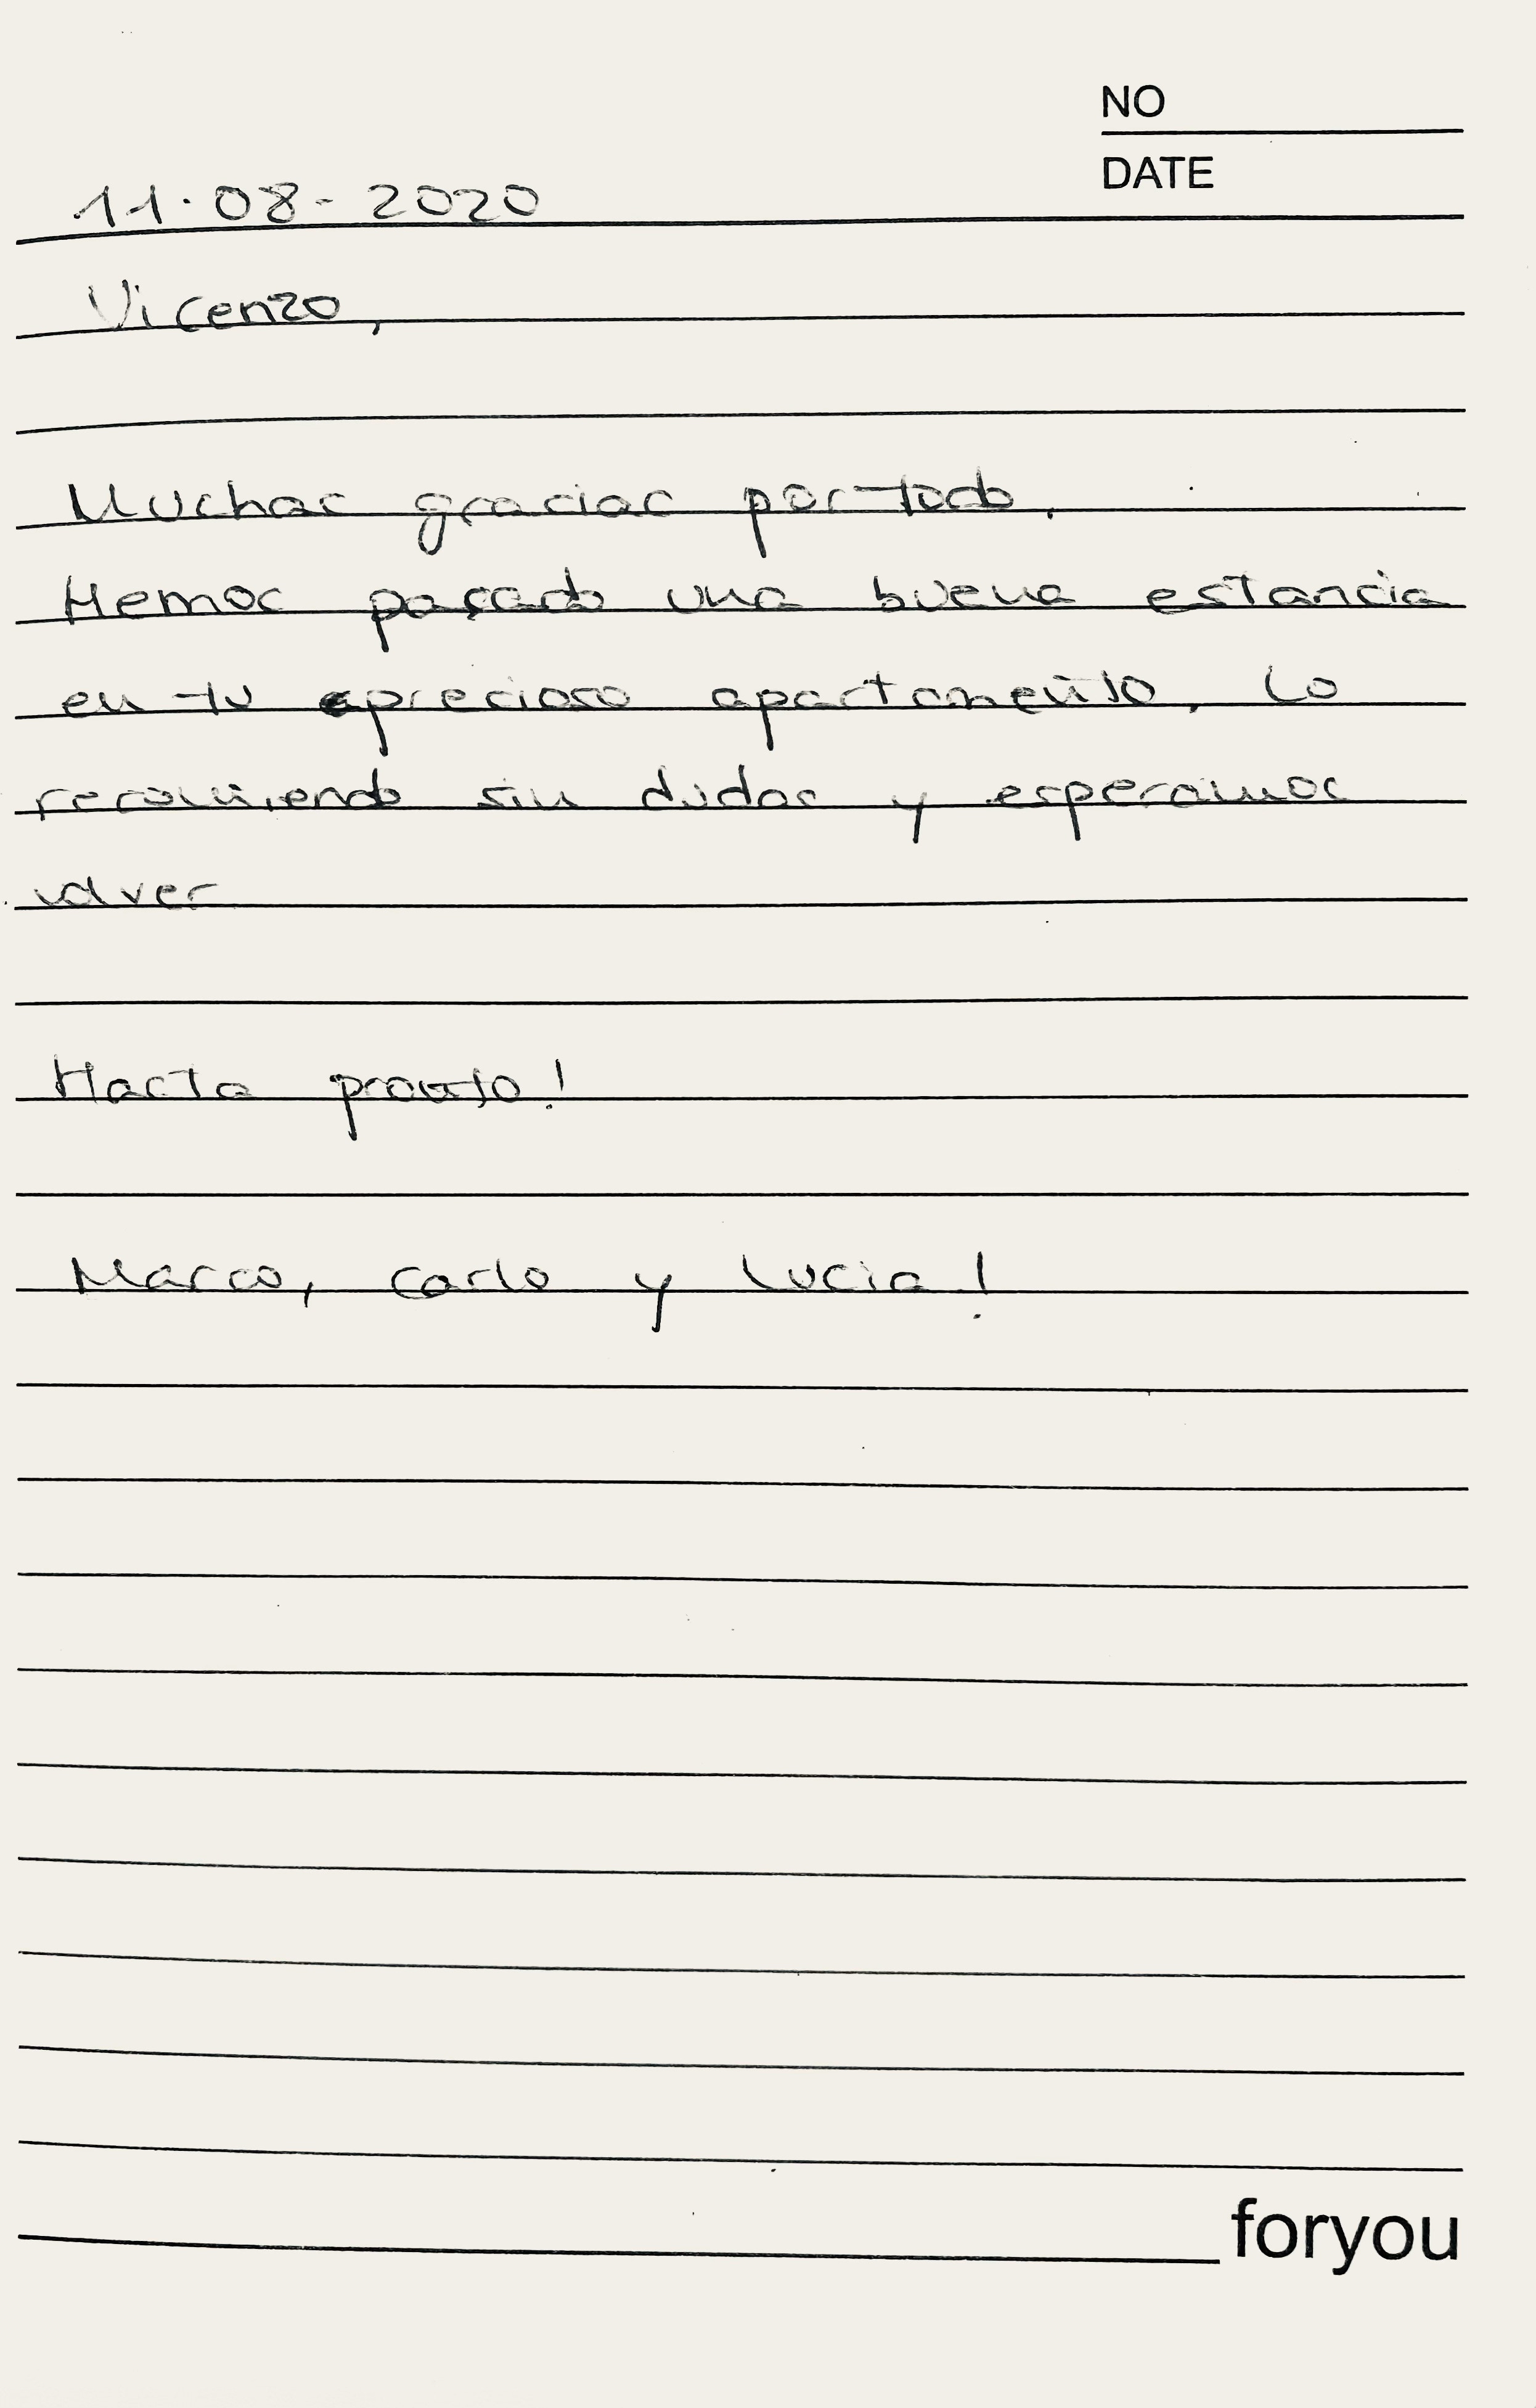 NO
DATE
11.08-2020
Vicenzo,
Muchas gracias por todo.
Hemos pasado una buena estancia
en tu aprecioso apartamento, lo
recomiendo sin dudas y esperamos
volver
Hasta pronto!
Marco, Carlo y Lucia!
foryou